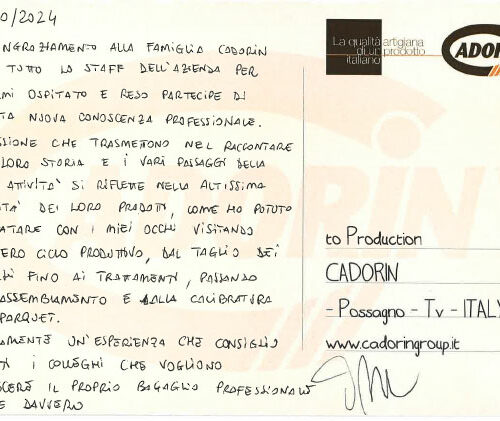 0/2024
NGRAZIAMENTO ALLA FAMIGLIA CADORIN
TUTTO LO STAFF DELL'AZIENDA PER
MI OSPITATO E RESO PARTECIPE DI
TA NUOVA CONOSCENZA PROFESSIONALE.
SSIONE CHE TRASMETONO NEL RACCONTARE
LORO STORIA E I VARI PASSAGGI DELLA
ATTIVITA' SI RIFLETTE NELLA ALTISSIMA
TA' DEI LORO PRODOTTI, COME HO POTUTO
ATARE CON I MIEI OCCHI VISITANDO
ERO CICLO PRODUTTIVO, DAL TAGLIO DEI
FINO AI TRATTAMENTI, PASSANDO
ASSEMBLAMENTO E ALLA CALIBRATURA
PARQUET.
AMENTE UN'ESPERIENZA CHE CONSIGLIO
I COLLEGHI CHE VOGLIONO
SCERE IL PROPRIO BAGAGLIO PROFESSIONALE
E DAVVERO
La qualità artigiana
di un prodotto
italiano
ADOR
CADORIN
to Production
CADORIN
- Possagno - Tv - ITALY
www.cadoringroup.it